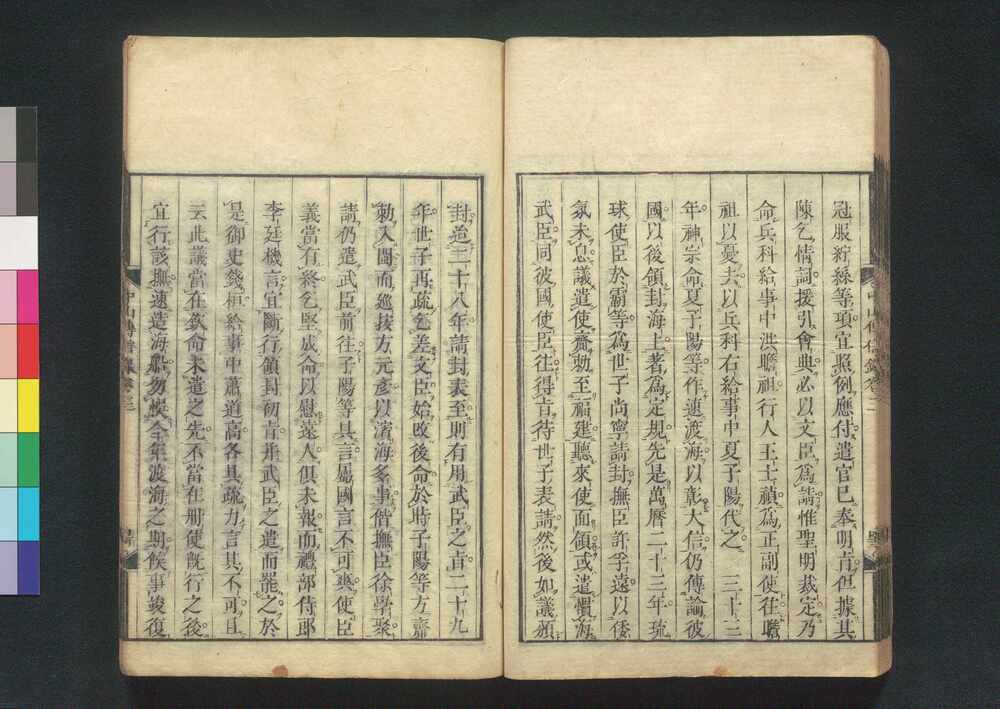 冠服紵絲等項宜照例應付遣官已奉明㫖但據其
陳乞情詞援引會典必以文臣為請惟聖明裁定乃
命兵科給事中洪瞻祖行人王士禎為正副使往瞻
祖以憂去以兵科右給事中夏子陽代之 三十三
年神宗命夏子陽等作速渡海以彰大信仍傳諭彼
國以後領封海上著為定規先是萬曆二十三年琉
球使臣於霸等為世子尚寧請封撫臣許孚遠以倭
氛未息議遣使齎勅至福建聽來使面領或遣慣海
武臣同彼國使臣往得㫖待世子表請然後如議頒
封迨二十八年請封表至則有用武臣之㫖二十九
年世子再疏乞差文臣始改後命於時子陽等方齎
勅入閩而廵按方元彥以濱海多事偕撫臣徐學聚
請仍遣武臣前往子陽等具言屬國言不可爽使臣
義當有終乞堅成命以慰遠人俱未報而禮部侍郎
李廷機言宜斷行領封初㫖并武臣之遣而罷之於
是御史錢桓給事中蕭道高各具疏力言其不可且
云此議當在欽命未遣之先不當在冊使旣行之後
宜行該撫速造海船勿悞今年渡海之期候事竣復
中山傳信錄卷三